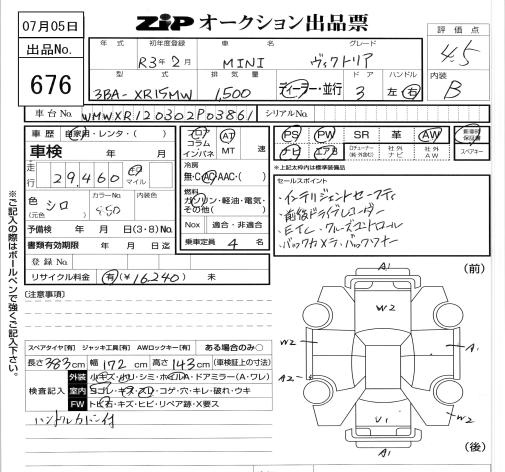 07月05日
ZiP オークション出品票
出品No.
676
年式 初年度登録 車名 グレード
R3年2月 MINI ヴィクトリア
型式 排気量 ドア ハンドル
3BA-XR15MW 1,500 ディーラー・並行 3 左・右
評価点
4.5
内装
B
車台No. WMWXR120302P03861 シリアルNo.
車歴 自家用・レンタ・( )
車検 年 月
走行 29,460 km マイル
色 シロ (元色) カラーNo. 850 内装色
予備検 年 月 日(3・8)No.
書類有効期限 年 月 日迄
登録No.
リサイクル料金 有(¥16,240) 未
フロア コラム インパネ AT MT 速
冷房
無・C・AC・AAC・( )
燃料
ガソリン・軽油・電気・その他( )
Nox 適合・非適合
乗車定員 4 名
PS PW SR 革 AW 新車時保証書
ナビ エアB 社外ナビ 社外AW スペアキー
*上記太枠内は標準装備品
セールスポイント
・インテリジェントセーフティ
・前後ドライブレコーダー
・ETC・クルーズコントロール
・バックカメラ・バックソナー
※ご記入の際はボールペンで強くご記入下さい。
[注意事項]
スペアタイヤ[有] ジャッキ工具[有] AWロックキー[有] ある場合のみ○
長さ383cm 幅172cm 高さ143cm (車検証上の寸法)
検査記入
外装 小キズ・ハリ・シミ・ホイルA・ドアミラー(A・ワレ)
室内 ヨゴレ・キズ・スレ・コゲ・穴・キレ・破れ・ウキ
FW トビ石・キズ・ヒビ・リペア跡・X要ス
ハンドルカバー付
(前)
A1
W2
W2
W2
A2
W2
U1
A1
(後)